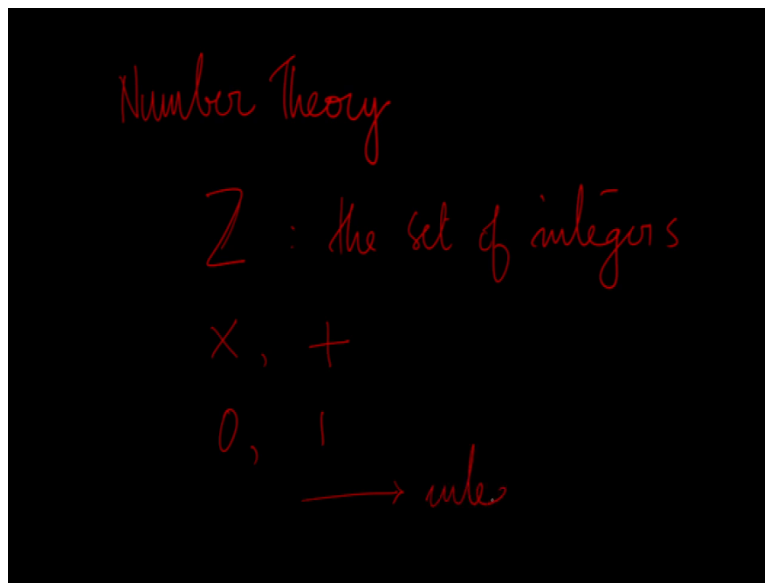 Number Theory
ℤ : the set of integers
×, +
0, 1
⟶ inte